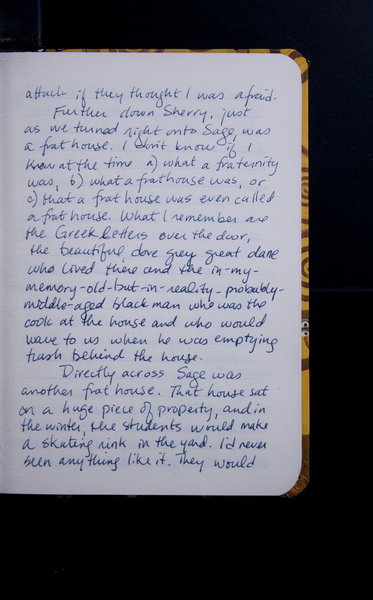 attack if they thought I was afraid.
Further down Sherry, just
as we turned right onto Sage, was
a frat house. I don't know if I
knew at the time a) what a fraternity
was, b) what a frathouse was, or
c) that a frat house was even called
a frat house. What I remember are
the Greek letters over the door,
the beautiful, dove grey great dane
who lived there and the in-my-
memory-old-but-in-reality-probably-
middle-aged black man who was the
cook at the house and who would
wave to us when he was emptying
trash behind the house.
Directly across Sage was
another frat house. That house sat
on a huge piece of property, and in
the winter, the students would make
a skating rink in the yard. I'd never
seen anything like it. They would